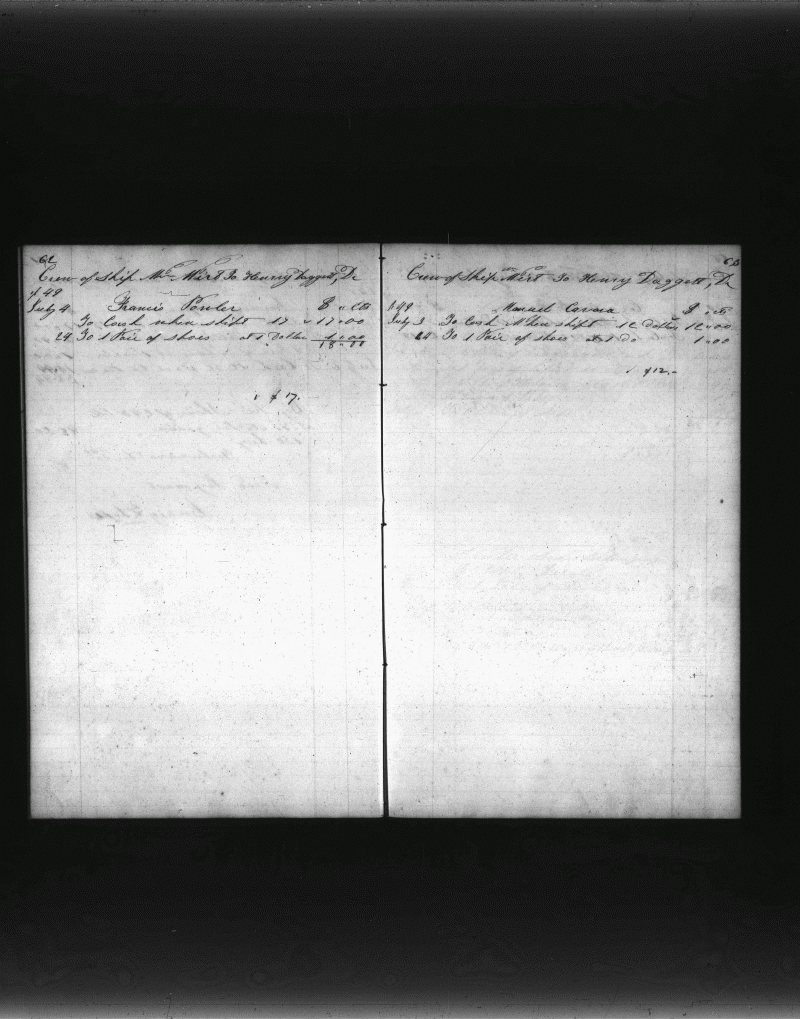 62
Crew of Ship To Henry Daggett, Dr
1849
July 4 Francis Fowler $ " Cts
To Cash when shipt 17 " 17.00
24 To 1 Pair of shoes at 1 Dollar 1.00
18.00
$17.
63
Crew of Ship To Henry Daggett, Dr
1849 Manuel $ cts
July 3 To Cash When shipt 12 Dollars 12.00
24 To 1 Pair of shoes at 1 Do 1.00
$12.